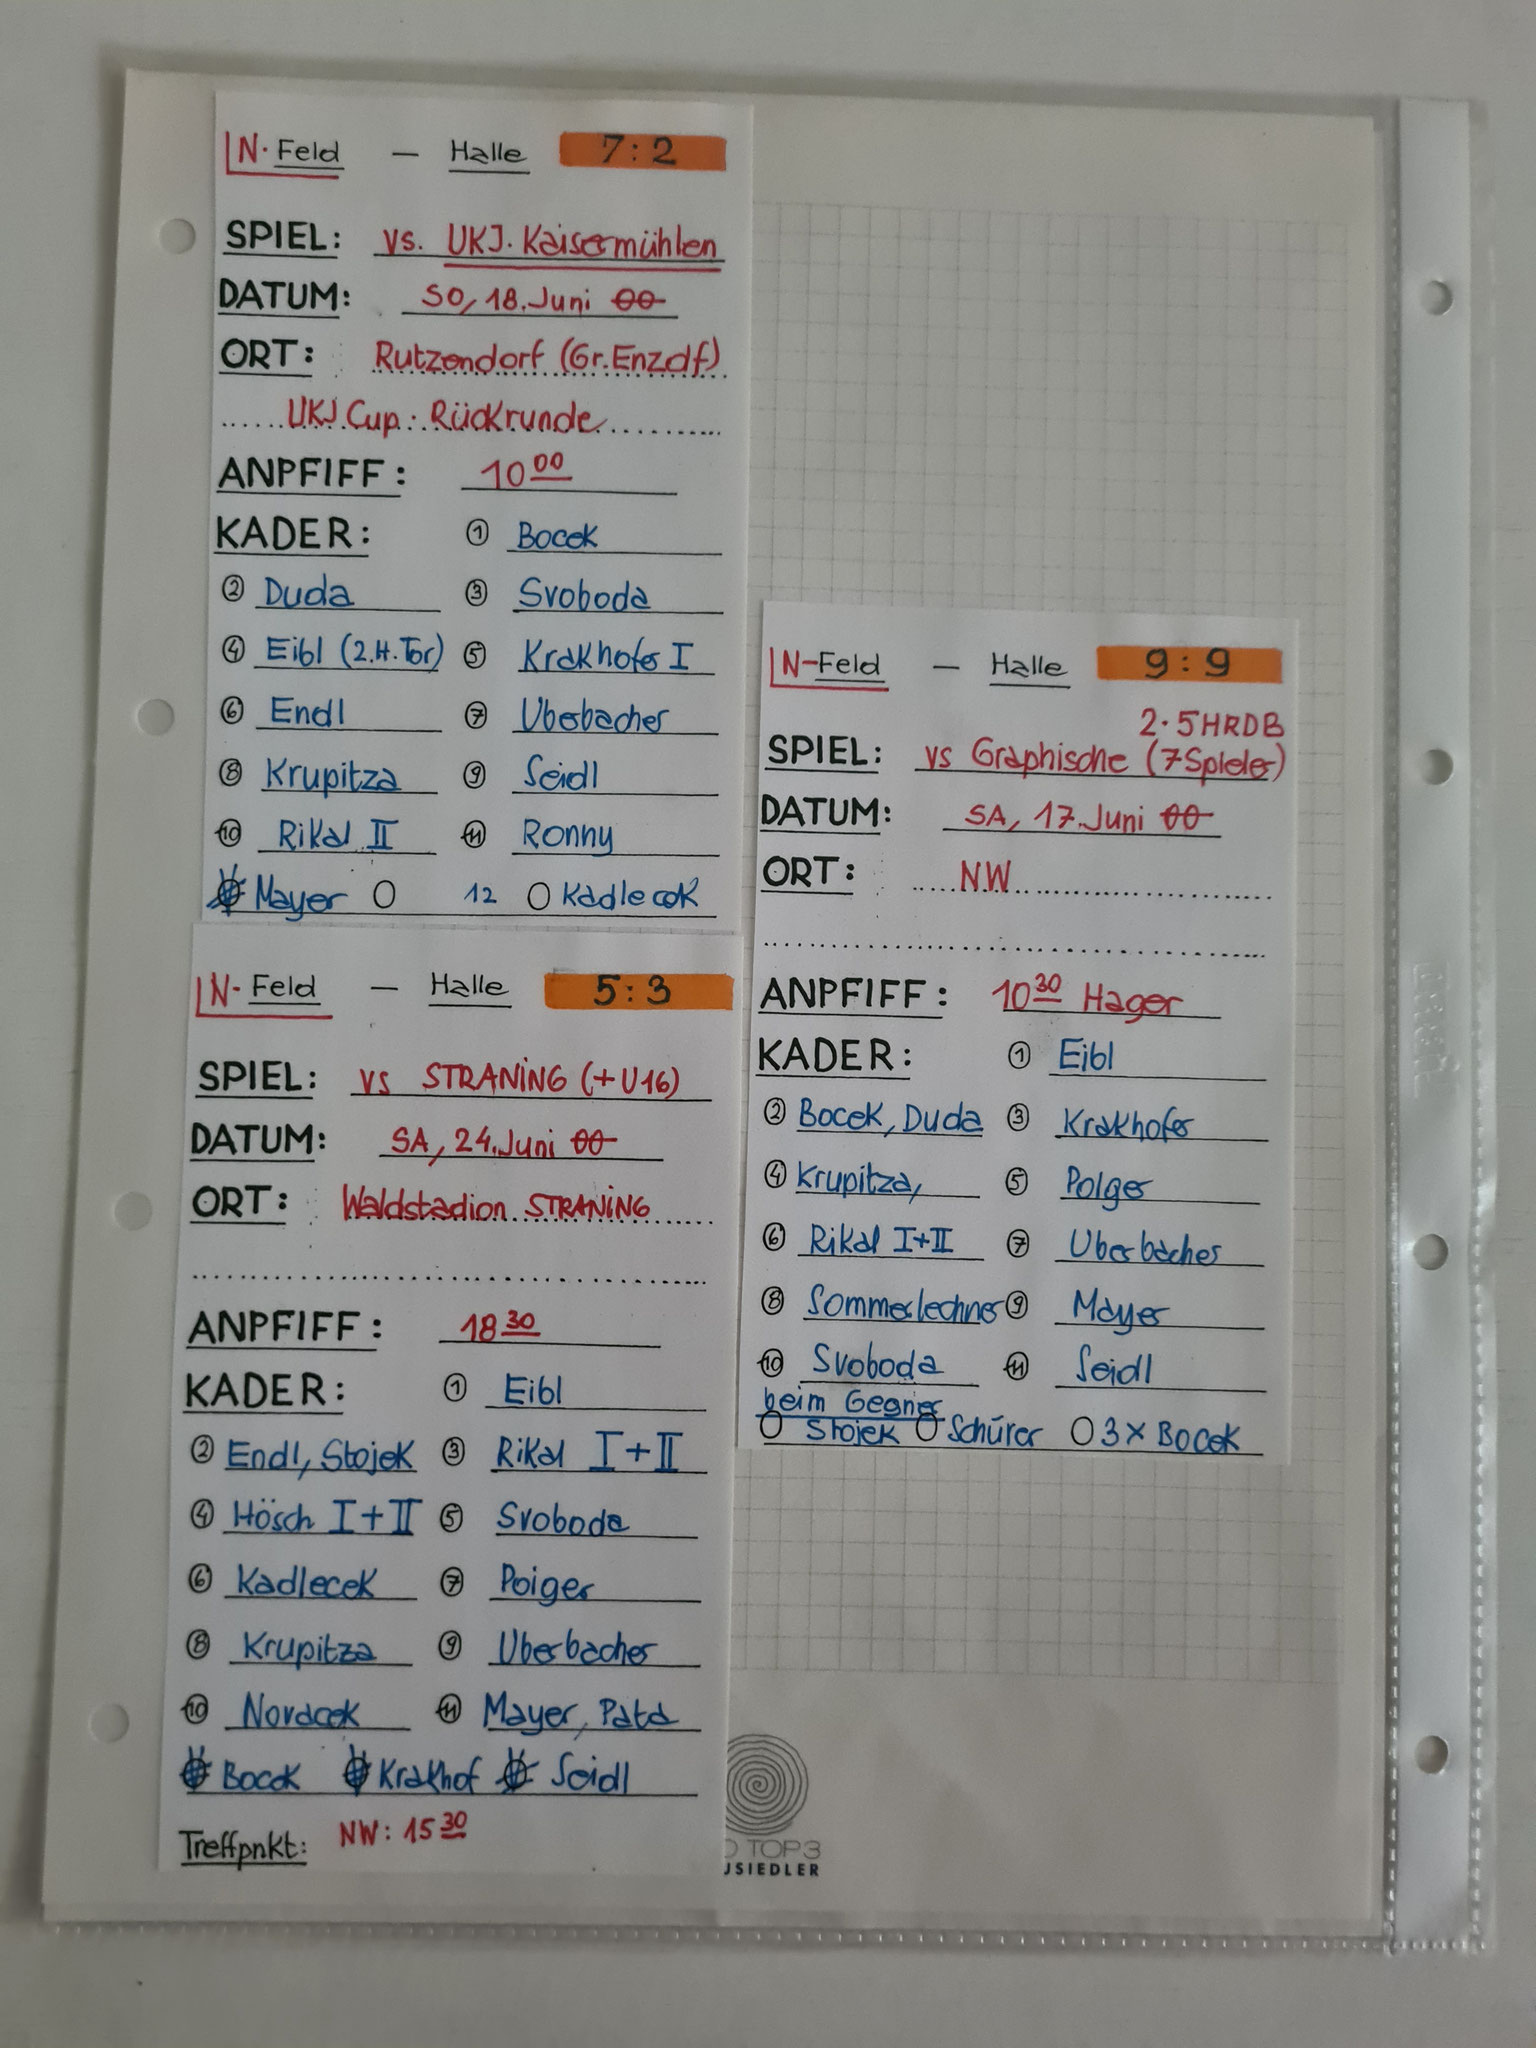 N. Feld — Halle 7:2
SPIEL: vs. UKJ. Kaisermühlen
DATUM: SO, 18. Juni 00
ORT: Rutzendorf (Gr. Enzdf)
UKJ Cup. Rückrunde
ANPFIFF: 10 00
KADER: ① Bocek
② Duda ③ Svoboda
④ Eibl (2.H. Tor) ⑤ Krakhofer I
⑥ Endl ⑦ Uberbacher
⑧ Krupitza ⑨ Seidl
⑩ Rikal II ⑪ Ronny
Mayer 12 Kadlecek
N- Feld — Halle 5:3
SPIEL: vs STRANING (+U16)
DATUM: SA, 24. Juni 00
ORT: Waldstadion STRANING
ANPFIFF: 18 30
KADER: ① Eibl
② Endl, Stojek ③ Rikal I+II
④ Hösch I+II ⑤ Svoboda
⑥ Kadlecek ⑦ Poiger
⑧ Krupitza ⑨ Uberbacher
⑩ Novacek ⑪ Mayer, Pata
Bocek Krakhof Seidl
Treffpnkt: NW: 15 30
N-Feld — Halle 9:9
2. 5HRDB
SPIEL: vs Graphische (7 Spieler)
DATUM: SA, 17. Juni 00
ORT: NW
ANPFIFF: 10 30 Hager
KADER: ① Eibl
② Bocek, Duda ③ Krakhofer
④ Krupitza, ⑤ Polger
⑥ Rikal I+II ⑦ Uberbacher
⑧ Sommerlechner ⑨ Mayer
⑩ Svoboda ⑪ Seidl
beim Gegner
Stojek Schürer 3x Bocek
TOP3
USIEDLER